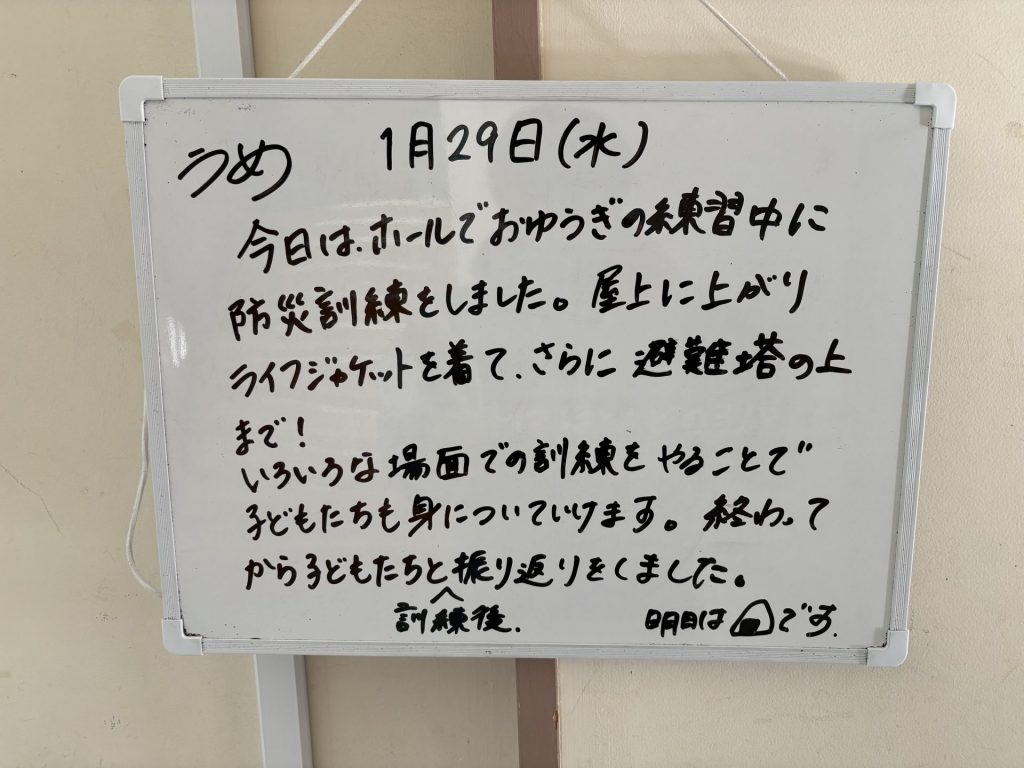 うめ 1月29日(水)
今日は、ホールでおゆうぎの練習中に
防災訓練をしました。屋上に上がり
ライフジャケットを着て、さらに避難塔の上
まで!
いろいろな場面での訓練をやることで
子どもたちも身についていけます。終わって
から子どもたちと振り返りをしました。
訓練後、 明日は🍙です。